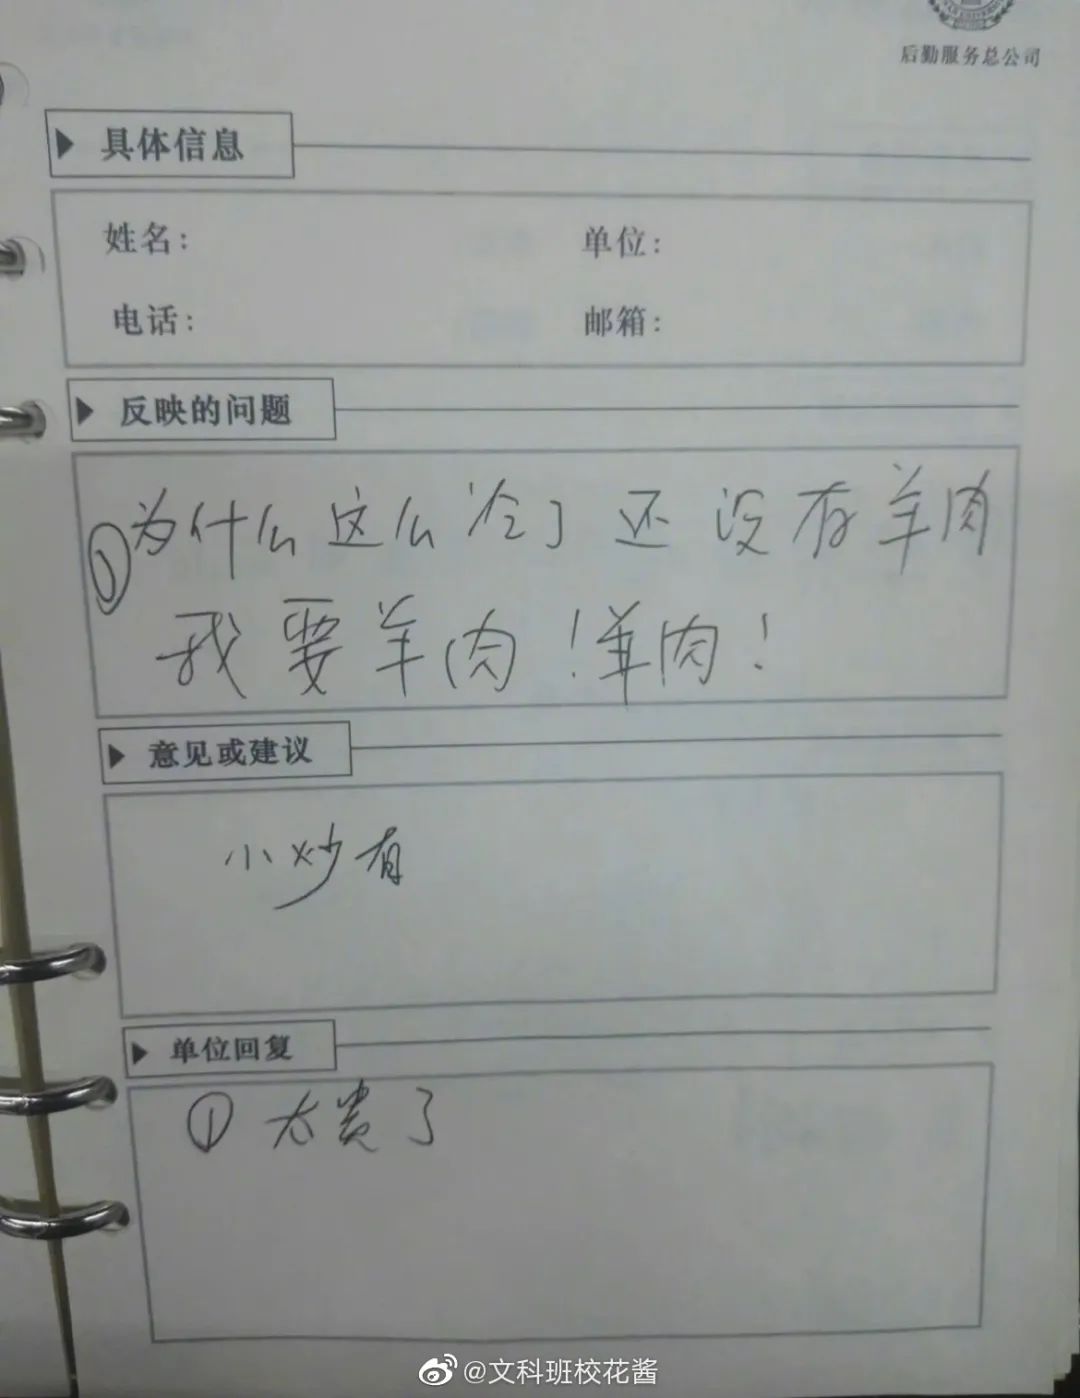 后勤服务总公司
具体信息
姓名： 单位：
电话： 邮箱：
反映的问题
①为什么这么冷了还没有羊肉
我要羊肉！羊肉！
意见或建议
小炒有
单位回复
① 太贵了
@文科班校花酱